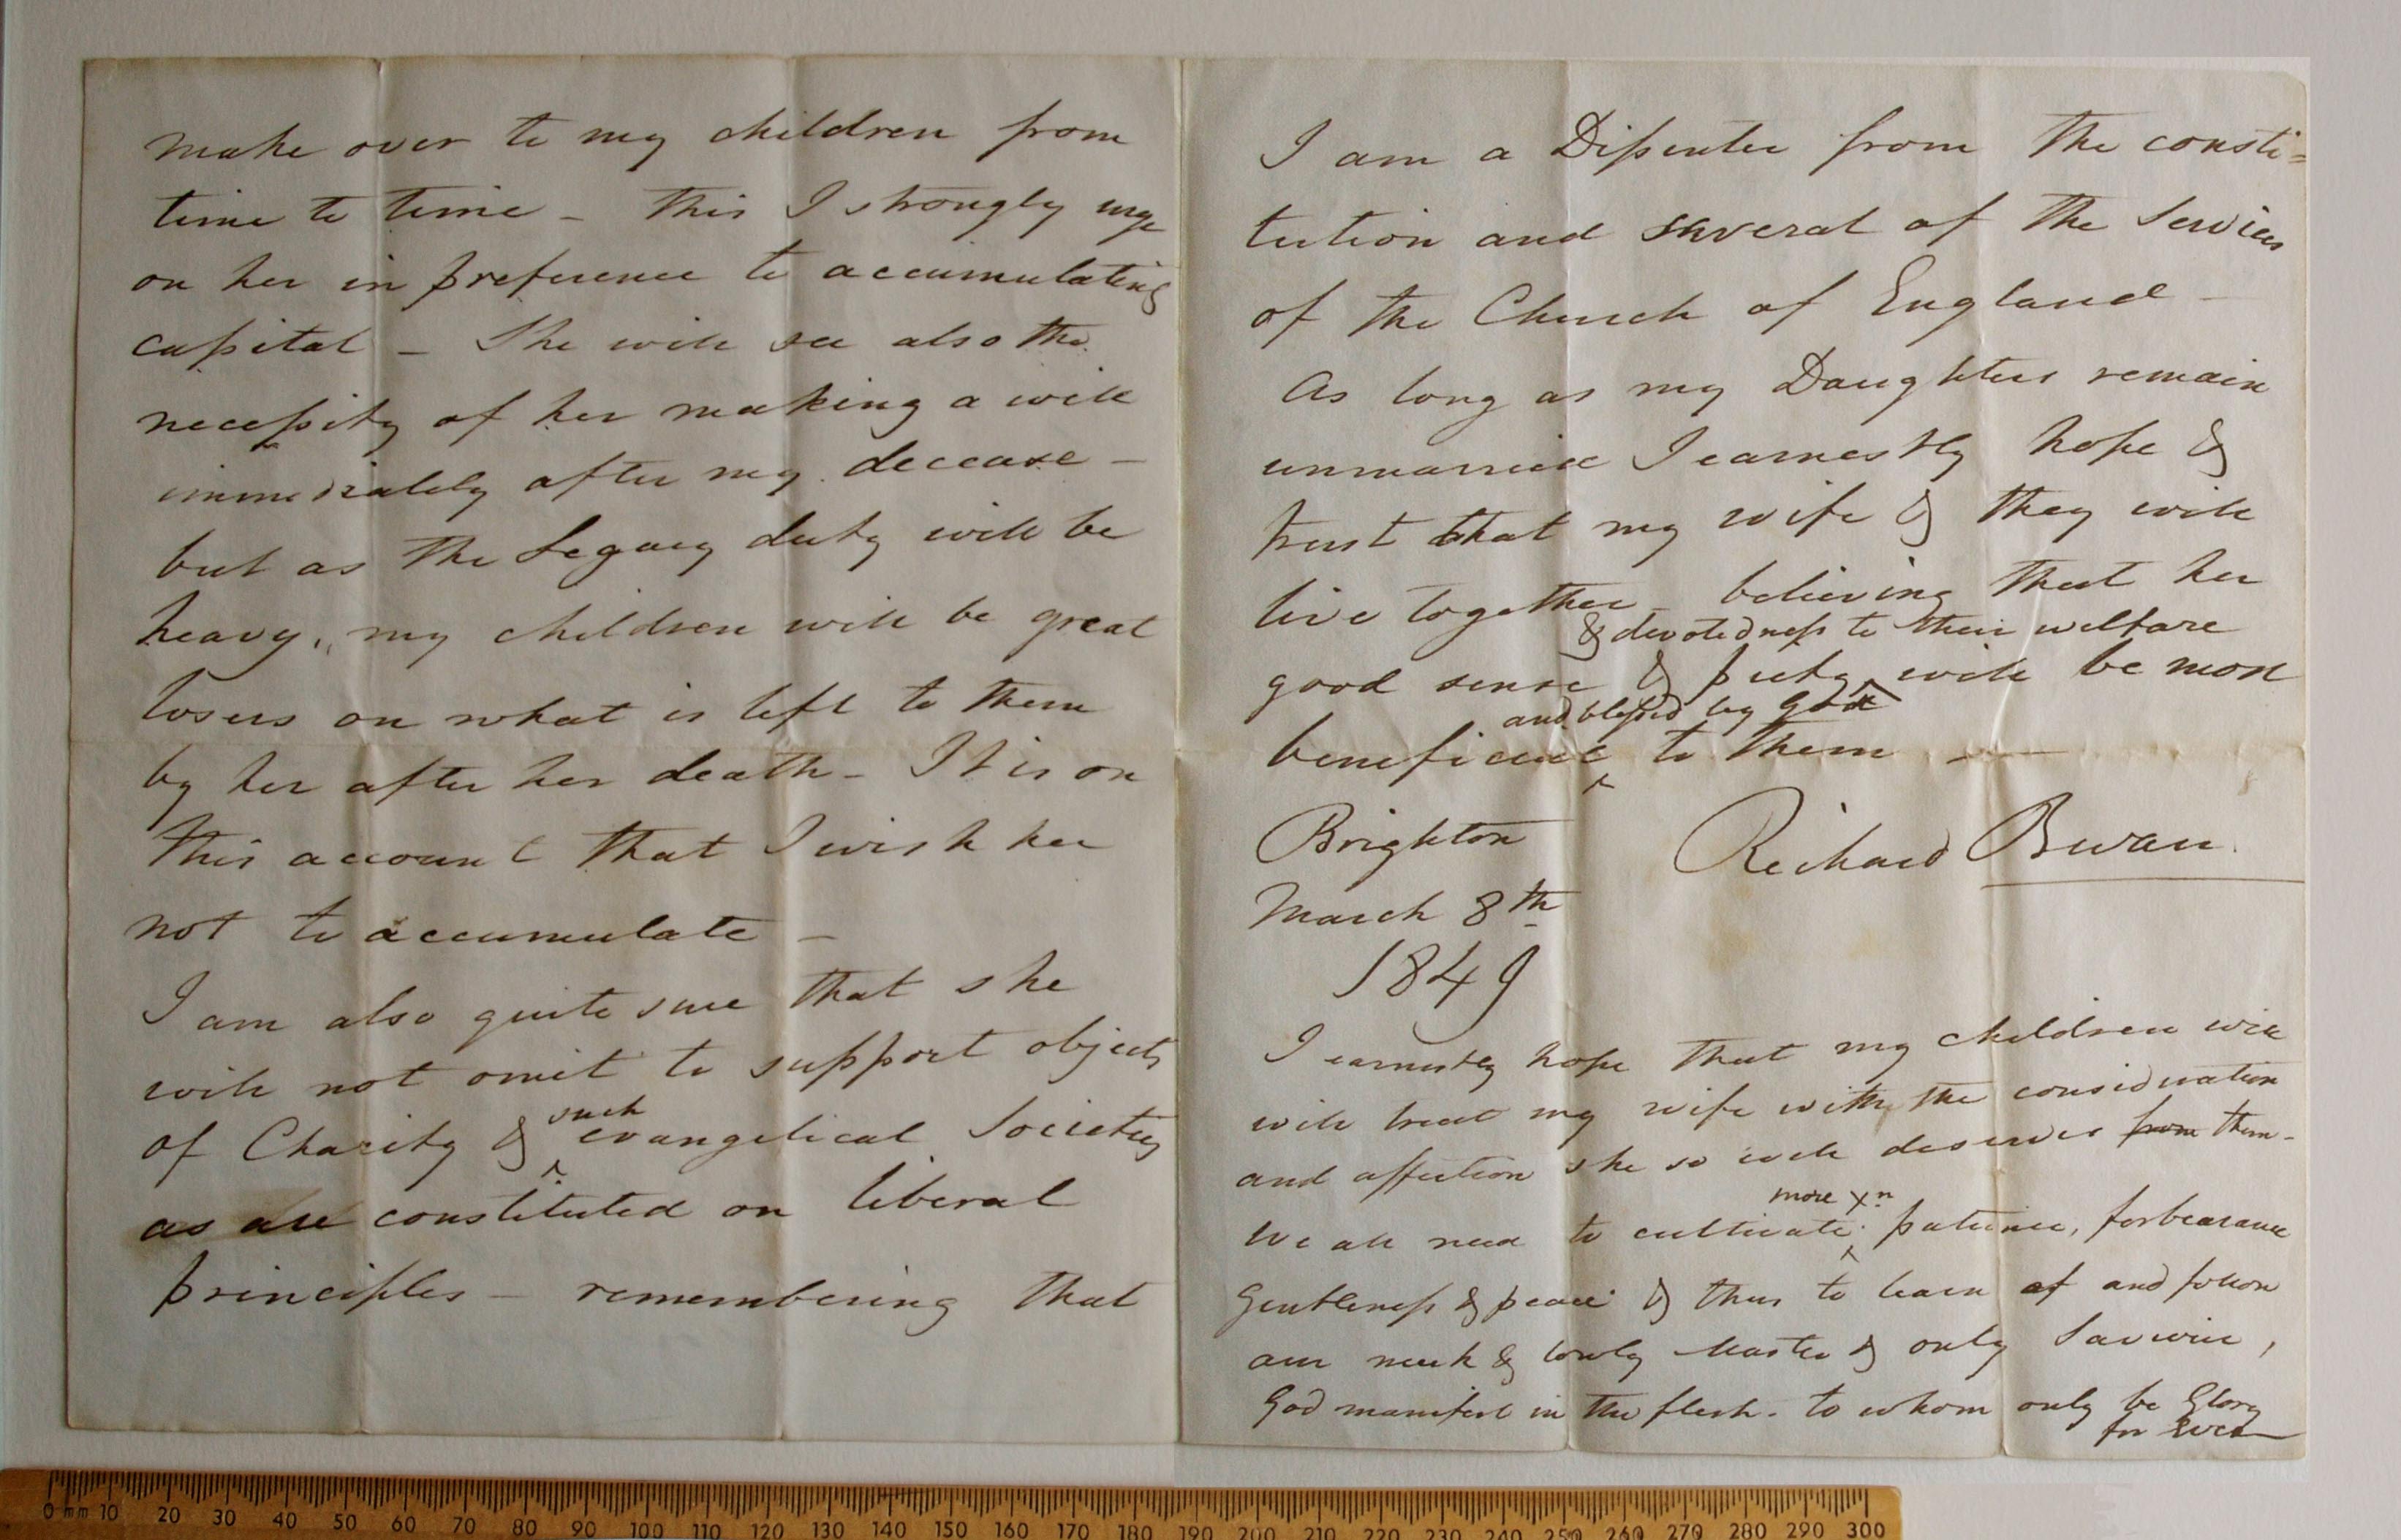 make over to my children from
time to time – this I strongly urge
on her in preference to accumulating
capital – She will see also the
necessity of her making a will
immediately after my decease –
but as the Legacy duty will be
heavy, my children will be great
losers on what is left to them
by her after her death – It is on
this account that I wish her
not to accumulate –
I am also quite sure that she
will not omit to support objects
such
of Charity & evangelical Societies
as are constituted on liberal
principles – remembering that
I am a Dissenter from the consti=
tution and several of the Services
of the Church of England –
As long as my Daughters remain
unmarried I earnestly hope &
trust that my wife & they will
live together – believing that her
& devotedness to their welfare
good sense & piety will be most
and blessed by God
beneficent to them –
Brighton
Richard
March 8th
1849
I earnestly hope that my children will
will treat my wife with the consideration
and affection she so well deserves from them –
more Xn
We all need to cultivate patience, forbearance
Gentleness & peace & thus to learn of and follow
our meek & lowly Master & only Saviour,
God manifest in the flesh – to whom only be Glory
for Ever
0 mm 10 20 30 40 50 60 70 80 90 100 110 120 130 140 150 160 170 180 190 200 210 220 230 240 250 260 270 280 290 300